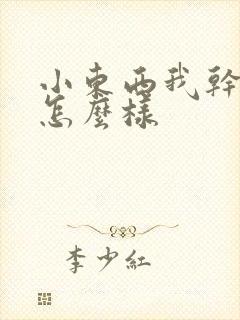 小東西我幹
怎麼樣
李少紅